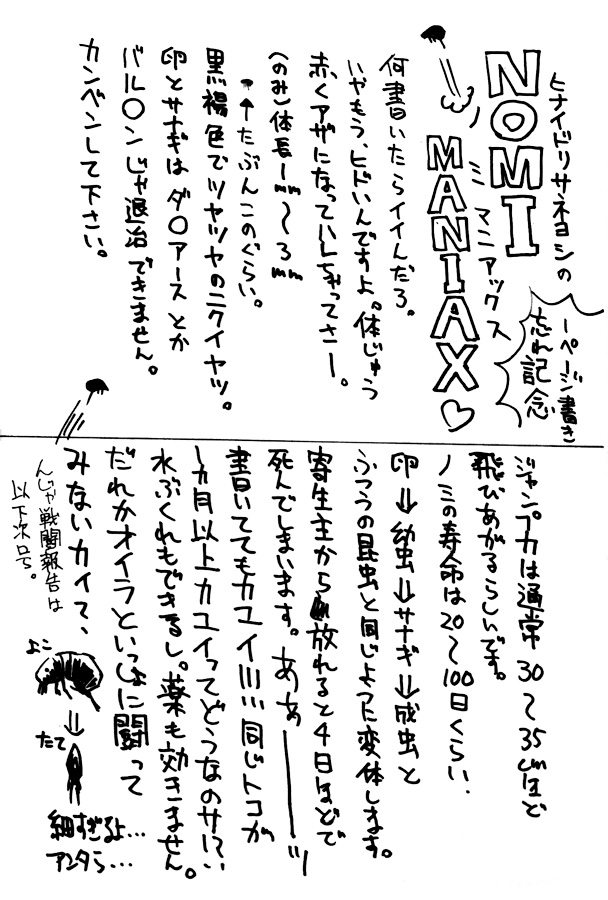 ヒナイドリサネヨシの
NOMI
ノミ マニアックス
MANIAX♡
1ページ書き
忘れ記念
何書いたらイイんだろ。
いやもう、ヒドいんですよ。体じゅう
赤くアザになっていらっしゃってさー。
(のみ)体長1mm〜3mm
↑たぶんこのぐらい。
黒褐色でツヤツヤのニクイヤツ。
卵とサナギはダ○アースとか
バル○ンじゃ退治できません。
カンベンして下さい。
ジャンプ力は通常30〜35cmほど
飛びあがるらしいです。
ノミの寿命は20〜100日くらい、
卵⇒幼虫⇒サナギ⇒成虫と
ふつうの昆虫と同じように変体します。
寄生主から放れると4日ほどで
死んでしまいます。あぁーーーッ
書いててもカユイ!!!!同じトコが
1ヵ月以上カユイってどうなのサ!?
水ぶくれもできるし。薬も効きません。
だれかオイラといっしょに闘って
みないカイ?、
んじゃ戦闘報告は
以下次号。
よこ
⇓
たて
細すぎるよ…
アンタら…